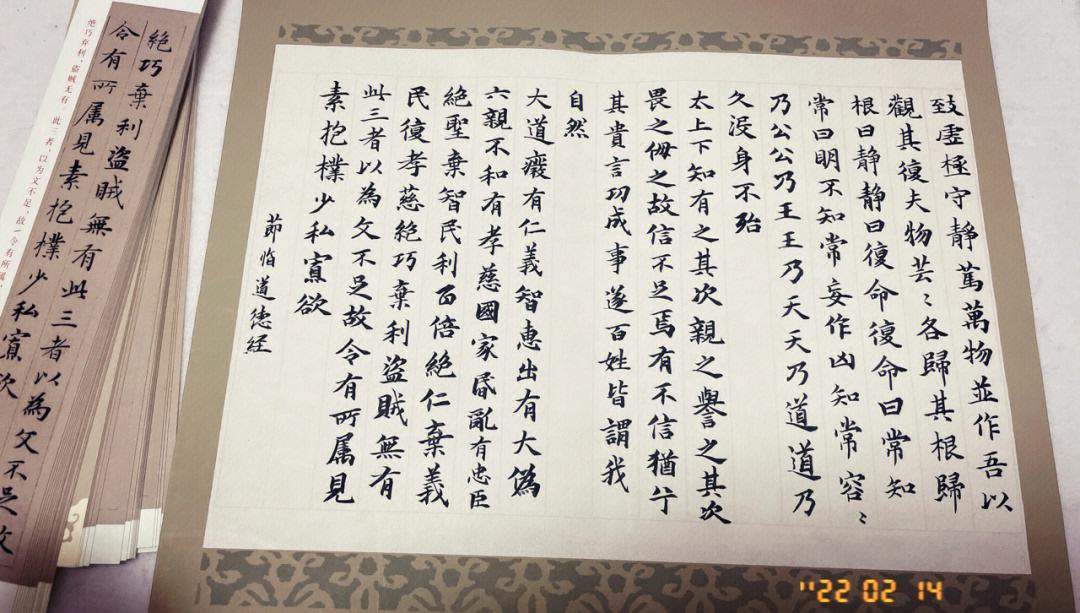 致虛極守靜篤萬物並作吾以
觀其復夫物芸〻各歸其根歸
根曰静静曰復命復命曰常知
常曰明不知常妄作凶知常容〻
乃公公乃王王乃天天乃道道乃
久没身不殆
太上下知有之其次親之譽之其次
畏之侮之故信不足焉有不信猶兮
其貴言功成事遂百姓皆謂我
自然
大道廢有仁義智惠出有大偽
六親不和有孝慈國家昬亂有忠臣
絕聖棄智民利百倍絕仁棄義
民復孝慈絕巧棄利盜賊無有
此三者以為文不足故令有所属見
素抱樸少私寡欲
節臨道德經
絕巧棄利盜賊無有此三者以為文不足故
令有所属見素抱樸少私寡欲
绝巧弃利，盗贼无有。此三者，以为文不足，故令有所属，
'22 02 14